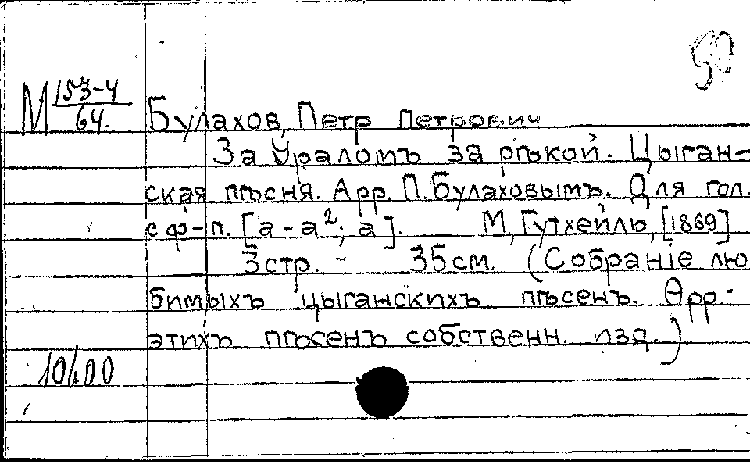 50
М 153-4
64.
Булахов, Петр Петрович
За Ураломъ за рѣкой. Цыган-
ская пѣсня. Арр. П. Булаховымъ. Для гол.
с ф-п. [а-а²; а]. М, Гутхейль, [1869]
3 стр. - 35 см. (Собранiе лю
бимыхъ цыганскихъ пѣсенъ. Арр.-
этихъ пѣсенъ собственн. изд.)